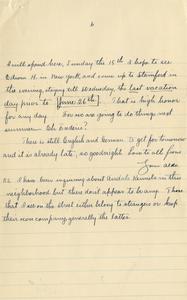 6
I will spend here, Sunday the 15th I hope to see
Edwin H. in New York, and come up to Stamford in
the evening, staying till Wednesday, the last vacation
day prior to [June 26th]. That is high honor
for any day. For we are going to do things next
summer.
There is still English and German to get for tomorrow
and it is already late, so goodnight. Love to all from
P.S. I have been inquiring about Airedale Kennels in this
neighborhood but there don't appear to be any. Those
that I see on the street either belong to strangers or keep
their own company, generally the latter.